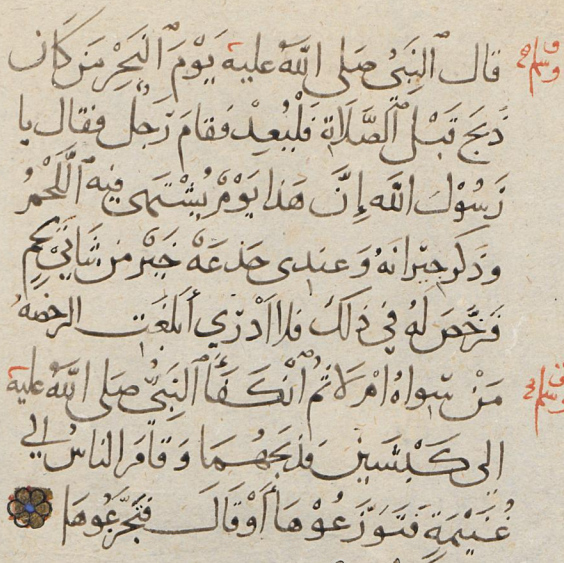 قال النَّبِيُّ صَلى اللَّهُ عليه يَوْمَ النَّحْرِ مَن كَان
ذَبَحَ قَبْلَ الصَّلَاةِ فَلْيُعِدْ فَقَامَ رَجُلٌ فقال يا
رَسُوْلَ اللَّه إِنَّ هَذا يَوْمٌ يُشْتَهى فيه اللَّحْمُ
وَذكر جِيْرَانَهُ وَعِندِى جَذَعَةٌ خَيْرٌ مِن شَاتَيْ لحمٍ
فَرَخَّصَ لهُ فِي ذلكَ فلا أَدْرِي أَبَلَغَتِ الرخصةُ
مَنْ سِواهُ امْ لَا ثُمَّ انْكَفَأَ النَّبِيُّ صَلى اللَّهُ عليه
الى كَبْشَيْنِ فَذَبَحَهُمَا وَقَامَ النَّاسُ إِلي
غُنَيْمَةٍ فَتَوَزَّعُوْهَا أَوْ قَالَ فَتَجَزَّعُوهَا